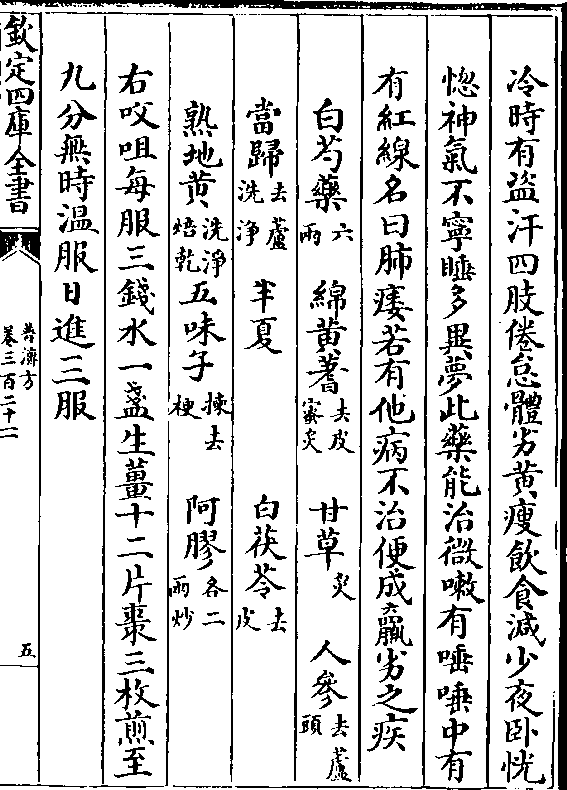 冷時有盜汗四肢倦怠體劣黄瘦飲食減少夜卧恍
惚神氣不寧睡多異夢此藥能治微嗽有唾唾中有
有紅線名曰肺痿若有他病不治便成羸劣之疾
白芍藥六兩 綿黄蓍去皮蜜炙 甘草炙 人參去蘆頭
當歸去蘆洗淨 半夏 白茯苓去皮
熟地黄洗淨焙乾 五味子揀去梗 阿膠各二兩炒
右㕮咀每服三錢水一盞生薑十二片棗三枚煎至
九分無時温服日進三服
欽定四庫全書
普濟方
卷三百二十一
五